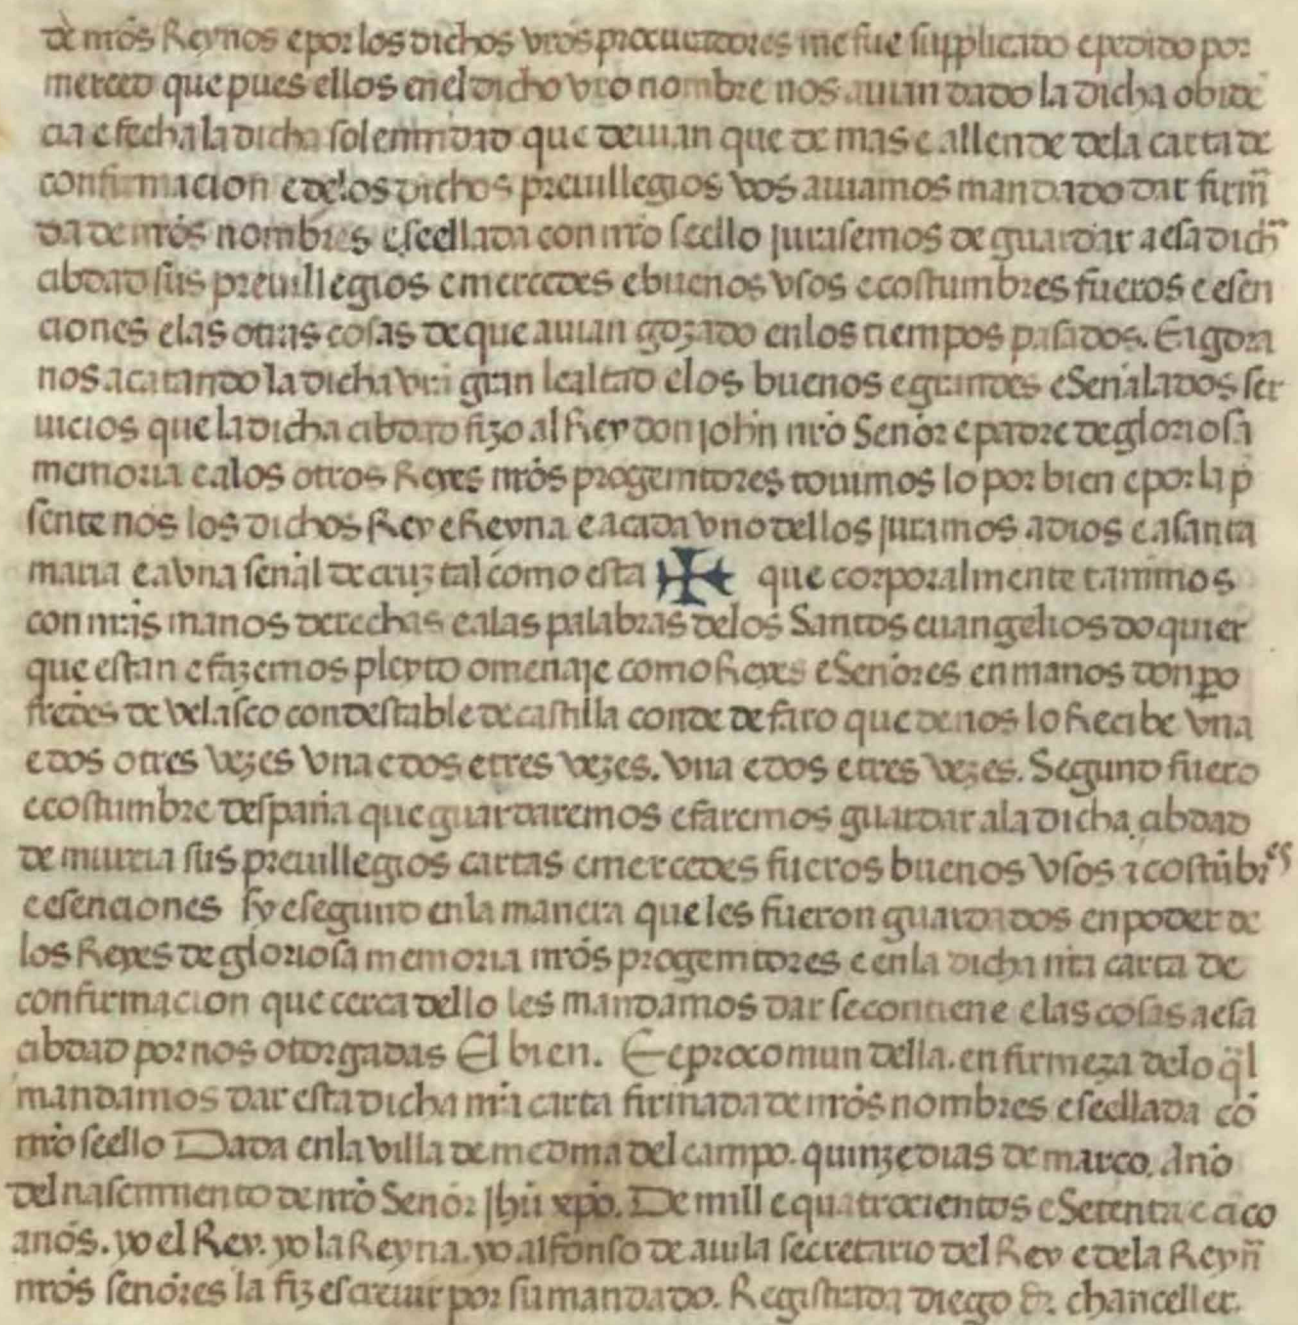 de nr̃os Reynos e por los dichos vr̃os procuradores me fue supplicado e pedido por
merced que pues ellos en el dicho vr̃o nombre nos auian dado la dicha obidẽ
cia e fecha la dicha solennidad que deuian que de mas e allende dela carta de
confirmacion e delos dichos preuillegios vos auiamos mandado dar firm̃
da de nr̃os nombres e seellada con nr̃o seello jurasemos de guardar a esa dich̃
cibdad sus preuillegios e mercedes e buenos vsos e costumbres fueros e esen
ciones e las otras cosas de que auian gozado enlos tiempos pasados. E agora
nos acatando la dicha vr̃a gran lealtad e los buenos e grandes e Señalados ser
uicios que la dicha cibdad fizo al Rey don joh̃n nr̃o Señor e padre de gloriosa
memoria e alos otros Reyes nr̃os progenitores touimos lo por bien e por la p̃
sente nos los dichos Rey e Reyna e a cada vno dellos juramos a dios e a santa
maria e a vna señal de cruz tal como esta ✠ que corporalmente tanimos
con nr̃as manos derechas e alas palabras delos Santos euangelios do quier
que estan e fazemos pleyto omenaje como Reyes e Señores en manos don p̃o
fr̃eds de velasco condestable de castilla conde de faro que de nos lo Recibe vna
e dos o tres vezes vna e dos e tres vezes. vna e dos e tres vezes. Segund fuero
e costumbre despaña que guardaremos e faremos guardar ala dicha cibdad
de murcia sus preuillegios cartas e mercedes fueros buenos vsos ⁊ costũbres
e esenciones sy e segund enla manera que les fueron guardados en poder de
los Reyes de gloriosa memoria nr̃os progenitores e enla dicha nr̃a carta de
confirmacion que cerca dello les mandamos dar se contiene e las cosas a esa
cibdad por nos otorgadas El bien. E eprocomun della. en firmeza delo q̃l
mandamos dar esta dicha nr̃a carta firmada de nr̃os nombres e seellada cõ
nr̃o seello Dada enla villa de medina del campo. quinze dias de março. Año
del nascimiento de nr̃o Señor jhũ xp̃o. De mill e quatrocientos e Setenta e cĩco
años. yo el Rey. yo la Reyna. yo alfonso de auila secretario del Rey e dela Reyñ
nr̃os señores la fiz escriuir por su mandado. Registrada diego s̃. chanceller.